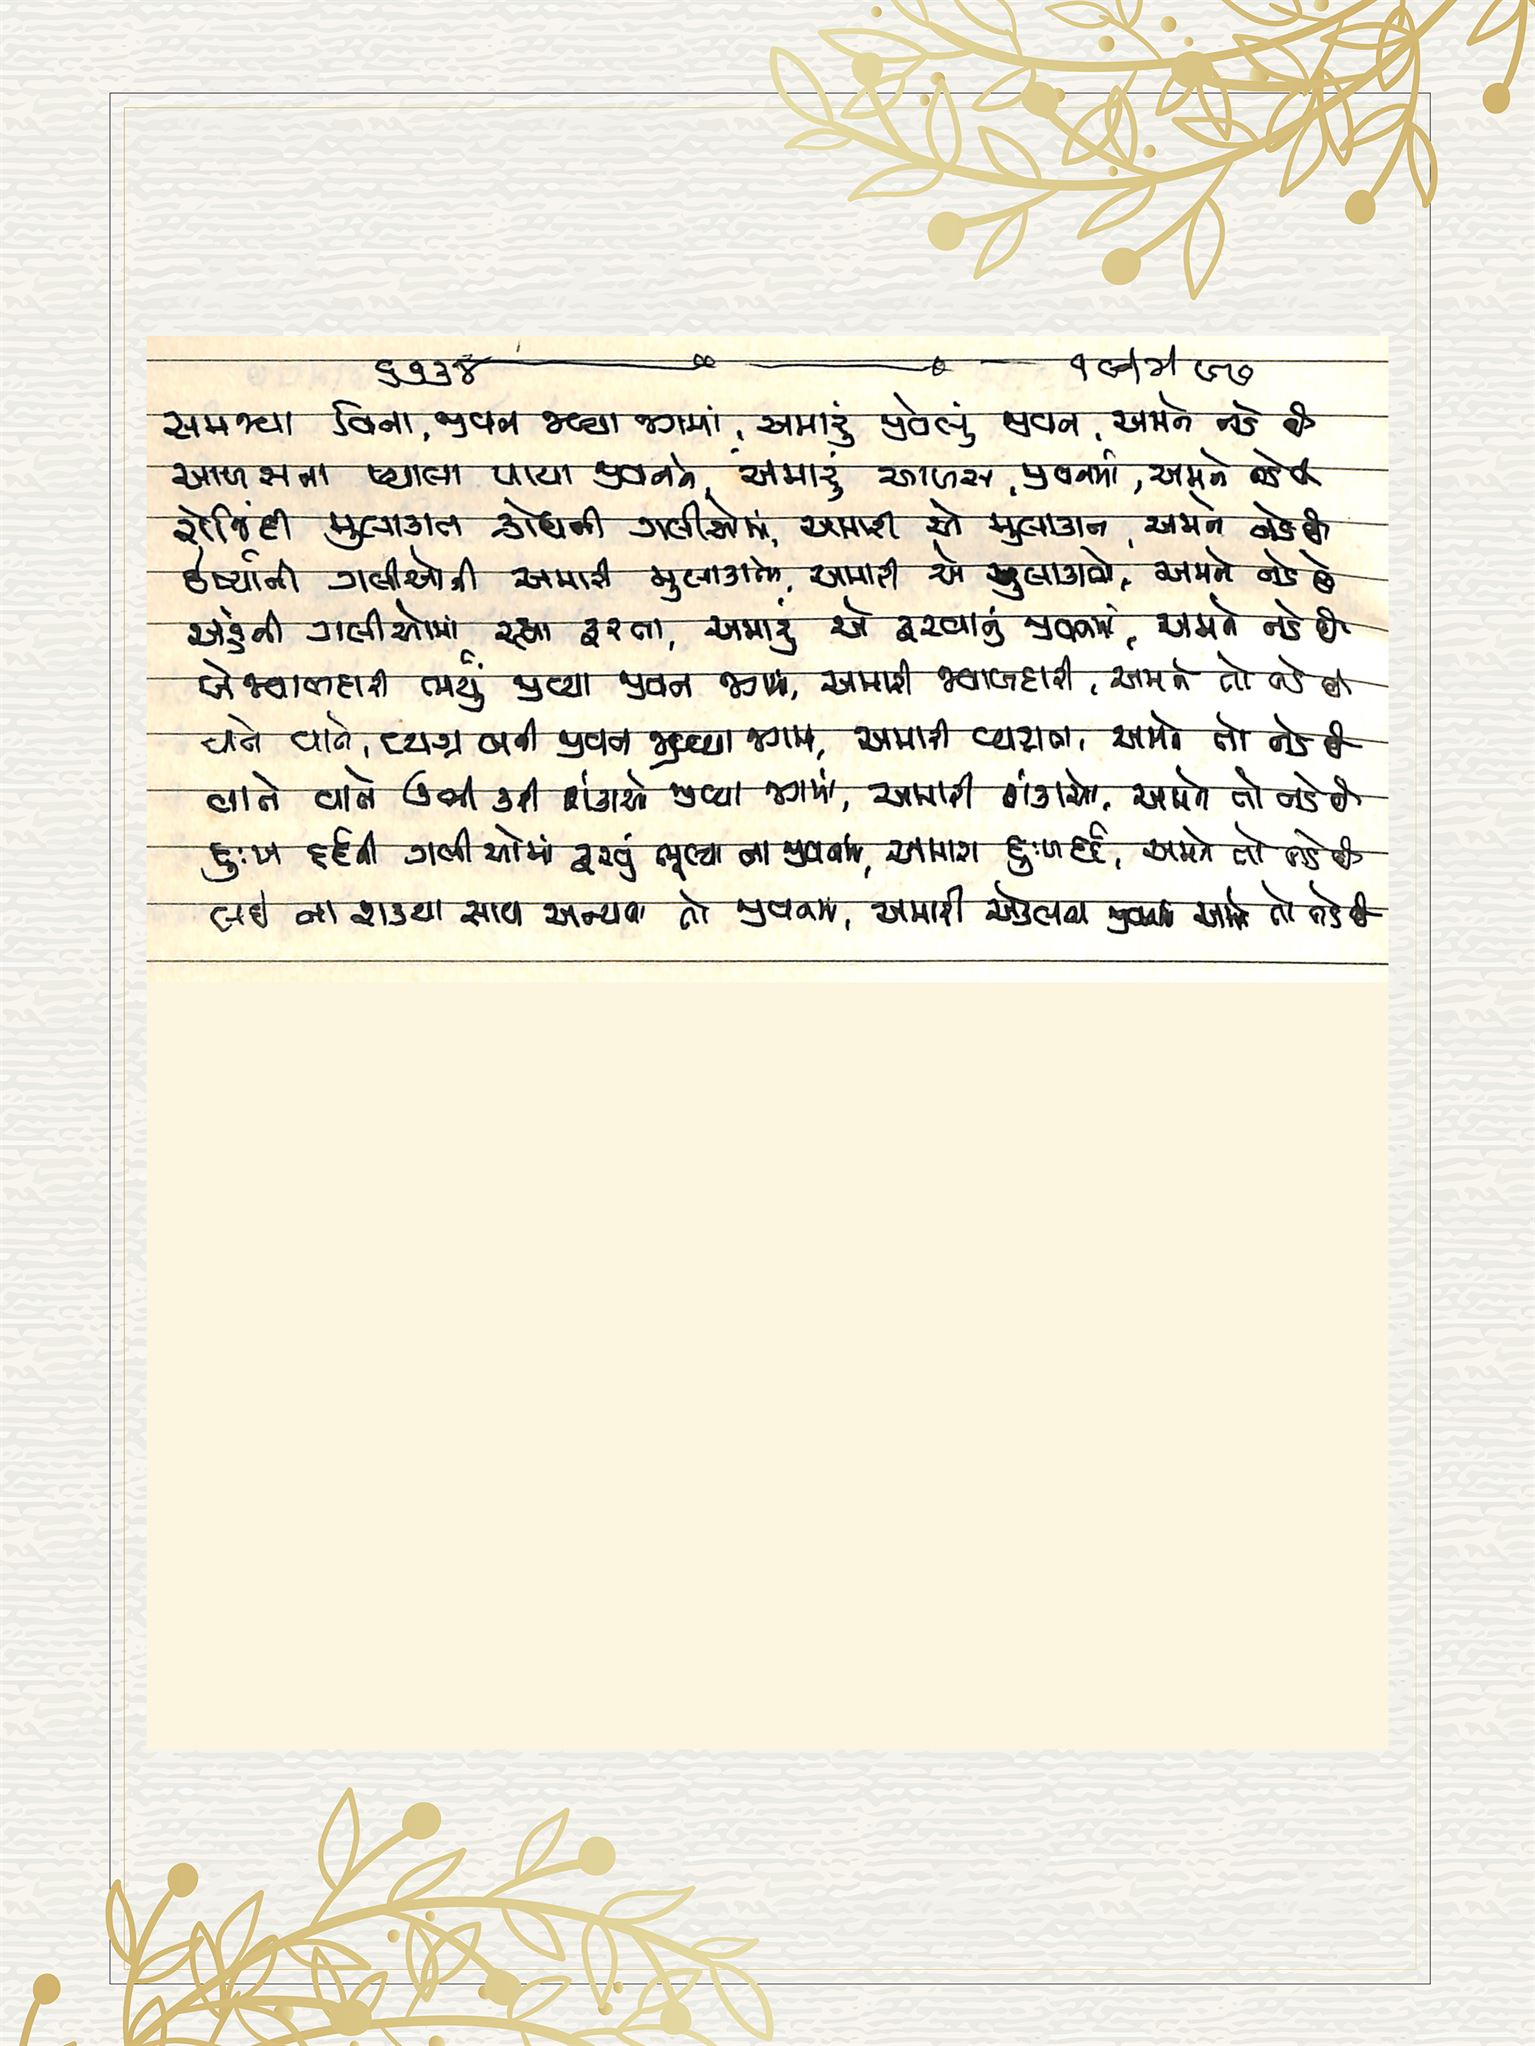 ૬૧૩૪ ૧ જન
સમજ્યા વિના, જીવન જીવ્યા જગમાં, અમારું જીવેલું જીવન, અમને નડે છે
આળસના પ્યાલા પાયા જીવનને, અમારું આળસ, જીવનમાં, અમને નડે છે
રોજિંદી મુલાકાત ક્રોધની ગલીઓમાં, અમારી એ મુલાકાત, અમને નડે છે
ઈર્ષ્યાની ગલીઓની અમારી મુલાકાતો, અમારી એ મુલાકાતો, અમને નડે છે
અહંની ગલીઓમાં રહ્યા ફરતા, અમારું એ ફરવાનું જીવનમાં, અમને નડે છે
બેજવાબદારી ભર્યું જીવ્યા જીવન જગમાં, અમારી જવાબદારી, અમને તો નડે છે
વાતે વાતે, વ્યગ્ર બની જીવન જીવ્યા જગમાં, અમારી વ્યગ્રતા, અમને તો નડે છે
વાતે વાતે ઊભી કરી શંકાઓ જીવ્યા જગમાં, અમારી શંકાઓ, અમને તો નડે છે
દુઃખ દર્દની ગલીઓમાં ફરવું ભૂલ્યા ના જીવનમાં, અમારા દુઃખદર્દ, અમને તો નડે છે
લઈ ના શક્યા સાથ અન્યના તો જીવનમાં, અમારી જીવનમાં અમને તો નડે છે